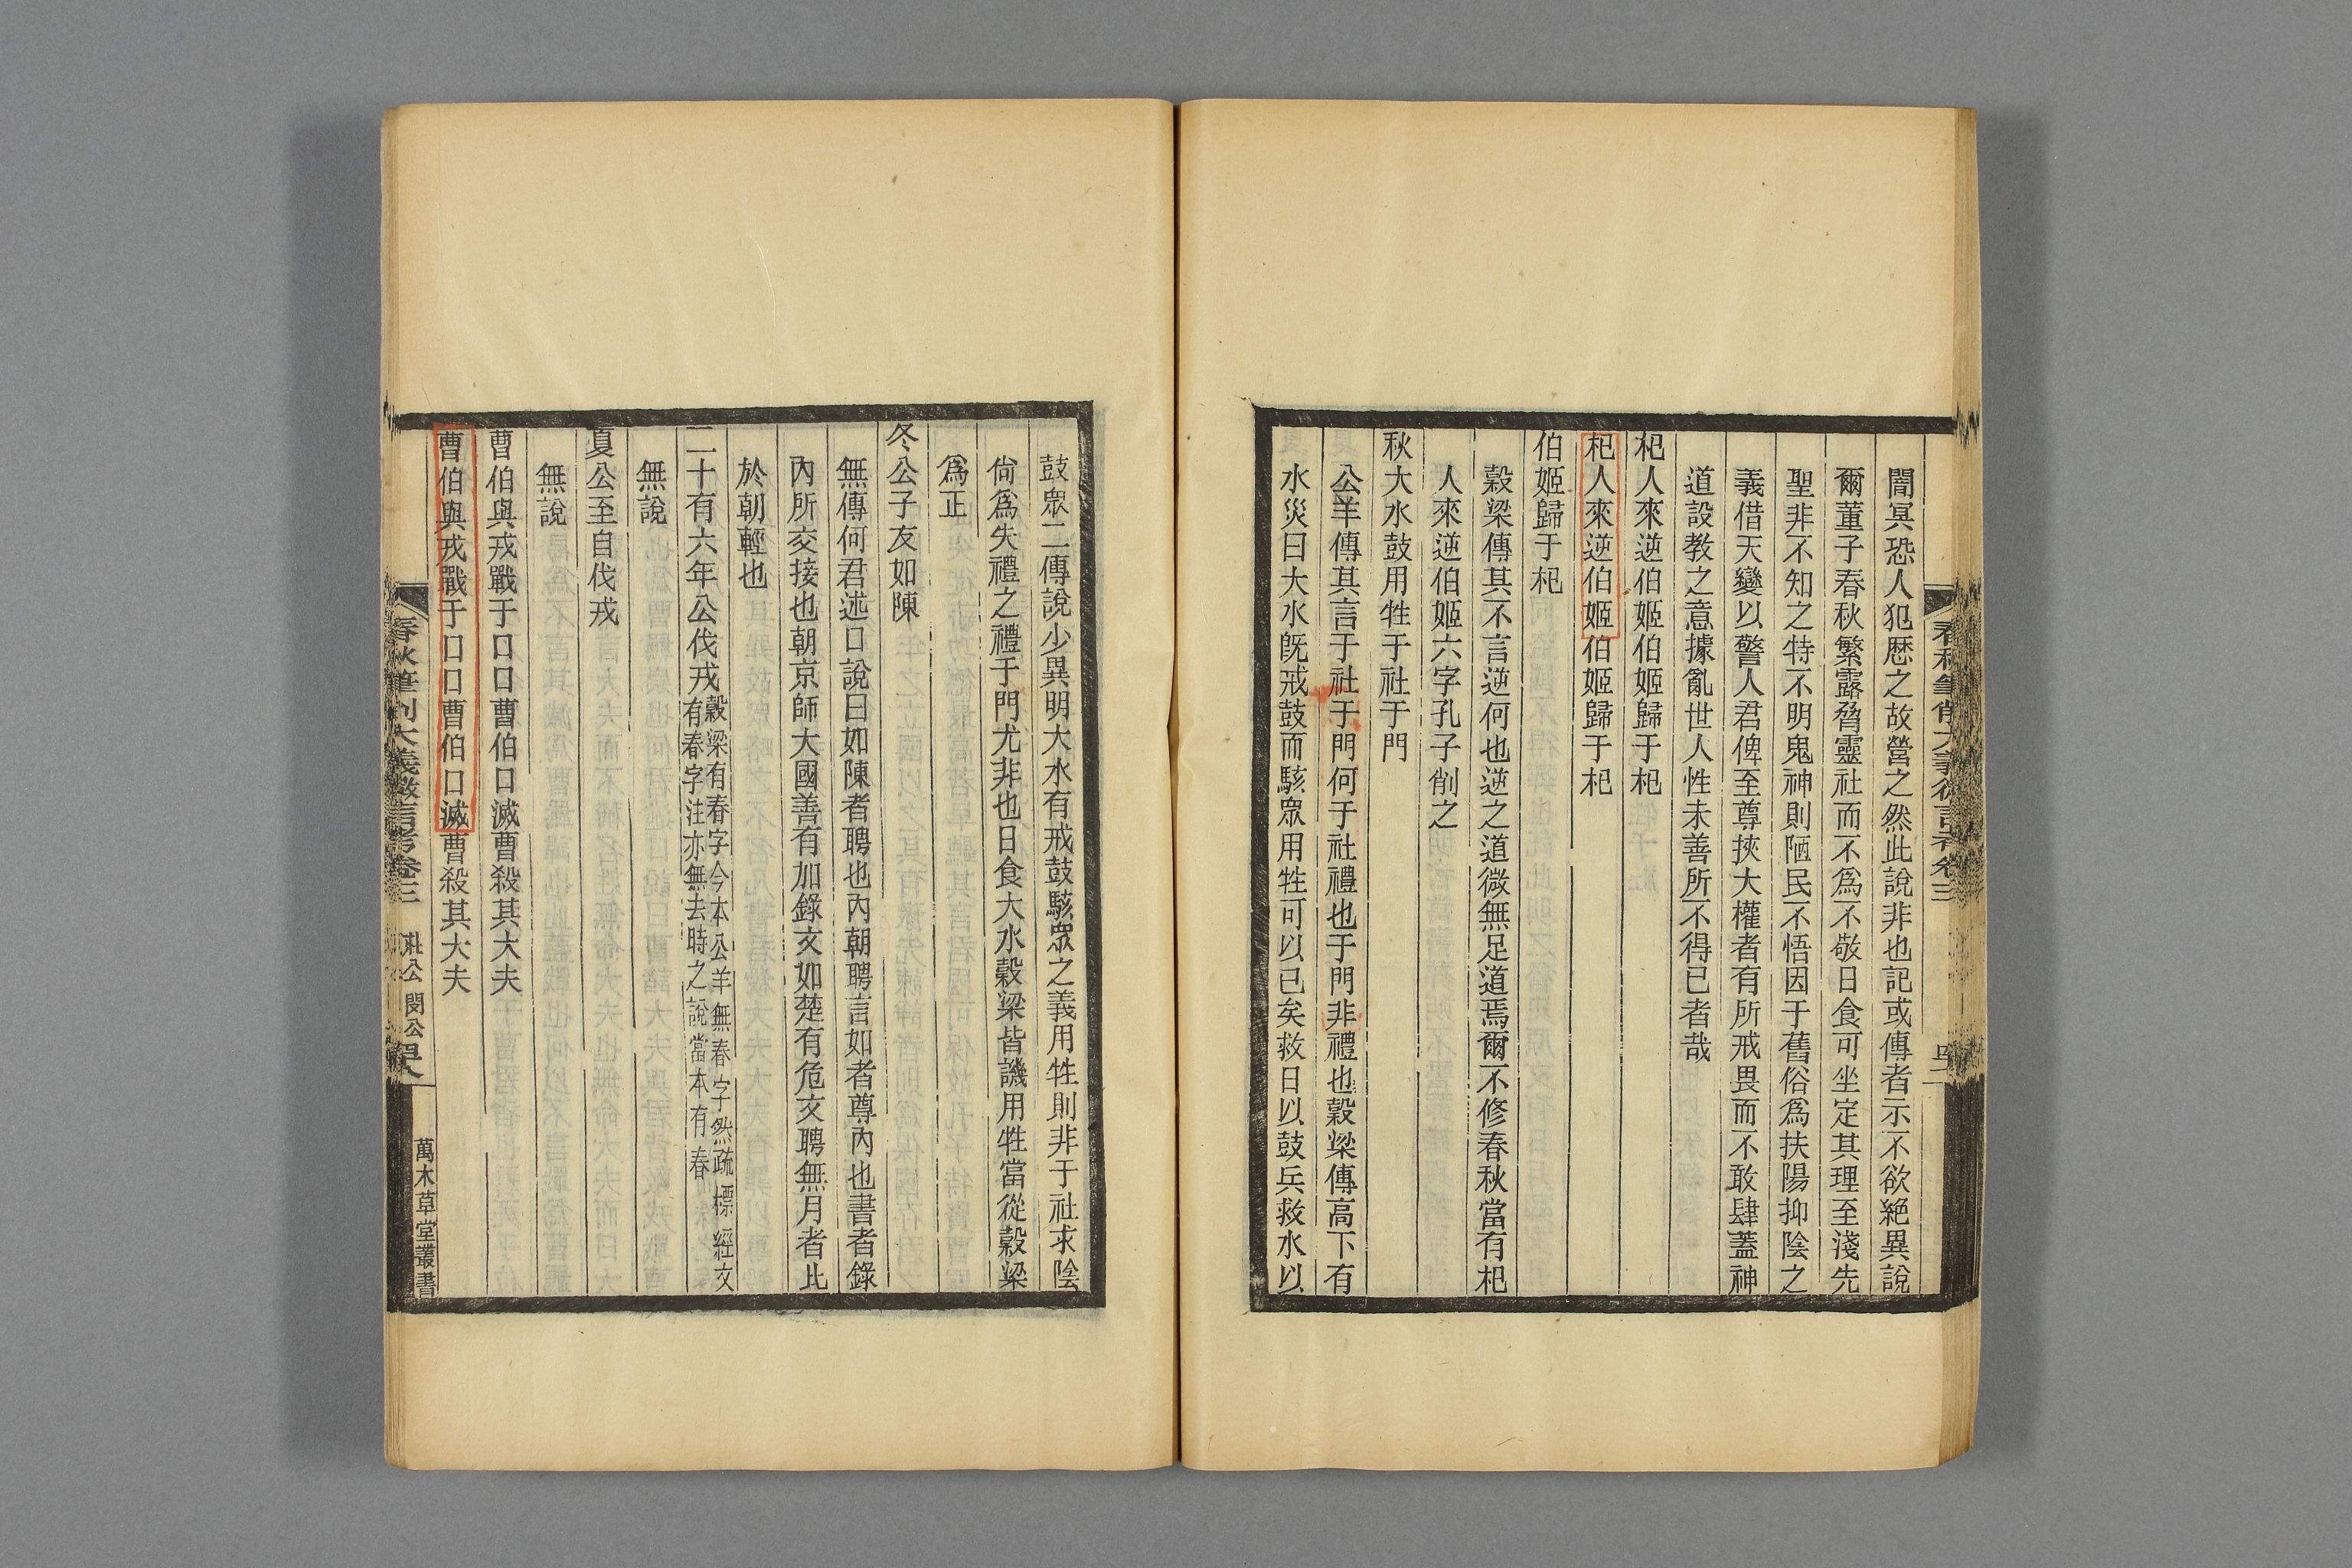 闇冥恐人犯厯之故營之然此說非也記或傳者示不欲絶異說
爾董子春秋繁露脅靈社而不爲不敬日食可坐定其理至淺先
聖非不知之特不明鬼神則陋民不悟因于舊俗爲扶陽抑陰之
義借天變以警人君俾至尊挾大權者有所戒畏而不敢肆蓋神
道設教之意據亂世人性未善所不得已者哉
杞人來逆伯姬伯姬歸于杞
杞人來逆伯姬伯姬歸于杞
伯姬歸于杞
穀梁傳其不言逆何也逆之道微無足道焉爾不修春秋當有杞
人來逆伯姬六字孔子削之
秋大水鼓用牲于社于門
公羊傳其言于社于門何于社禮也于門非禮也穀梁傳高下有
水災曰大水旣戒鼓而駭眾用牲可以已矣救日以鼓兵救水以
鼓眾二傳說少異明大水有戒鼓駭眾之義用牲則非于社求陰
尙爲失禮之禮于門尤非也日食大水穀梁皆譏用牲當從穀梁
爲正
冬公子友如陳
無傳何君述口說曰如陳者聘也內朝聘言如者尊內也書者錄
內所交接也朝京師大國善有加錄文如楚有危文聘無月者比
於朝輕也
二十有六年公伐戎穀梁有春字今本公羊無春字然疏標經文
有春字注亦無去時之說當本有春
無說
夏公至自伐戎
無說
曹伯與戎戰于口口曹伯口滅曹殺其大夫
曹伯與戎戰于口口曹伯口滅曹殺其大夫
春秋筆削大義微言考卷三 莊公 閔公
萬木草堂叢書